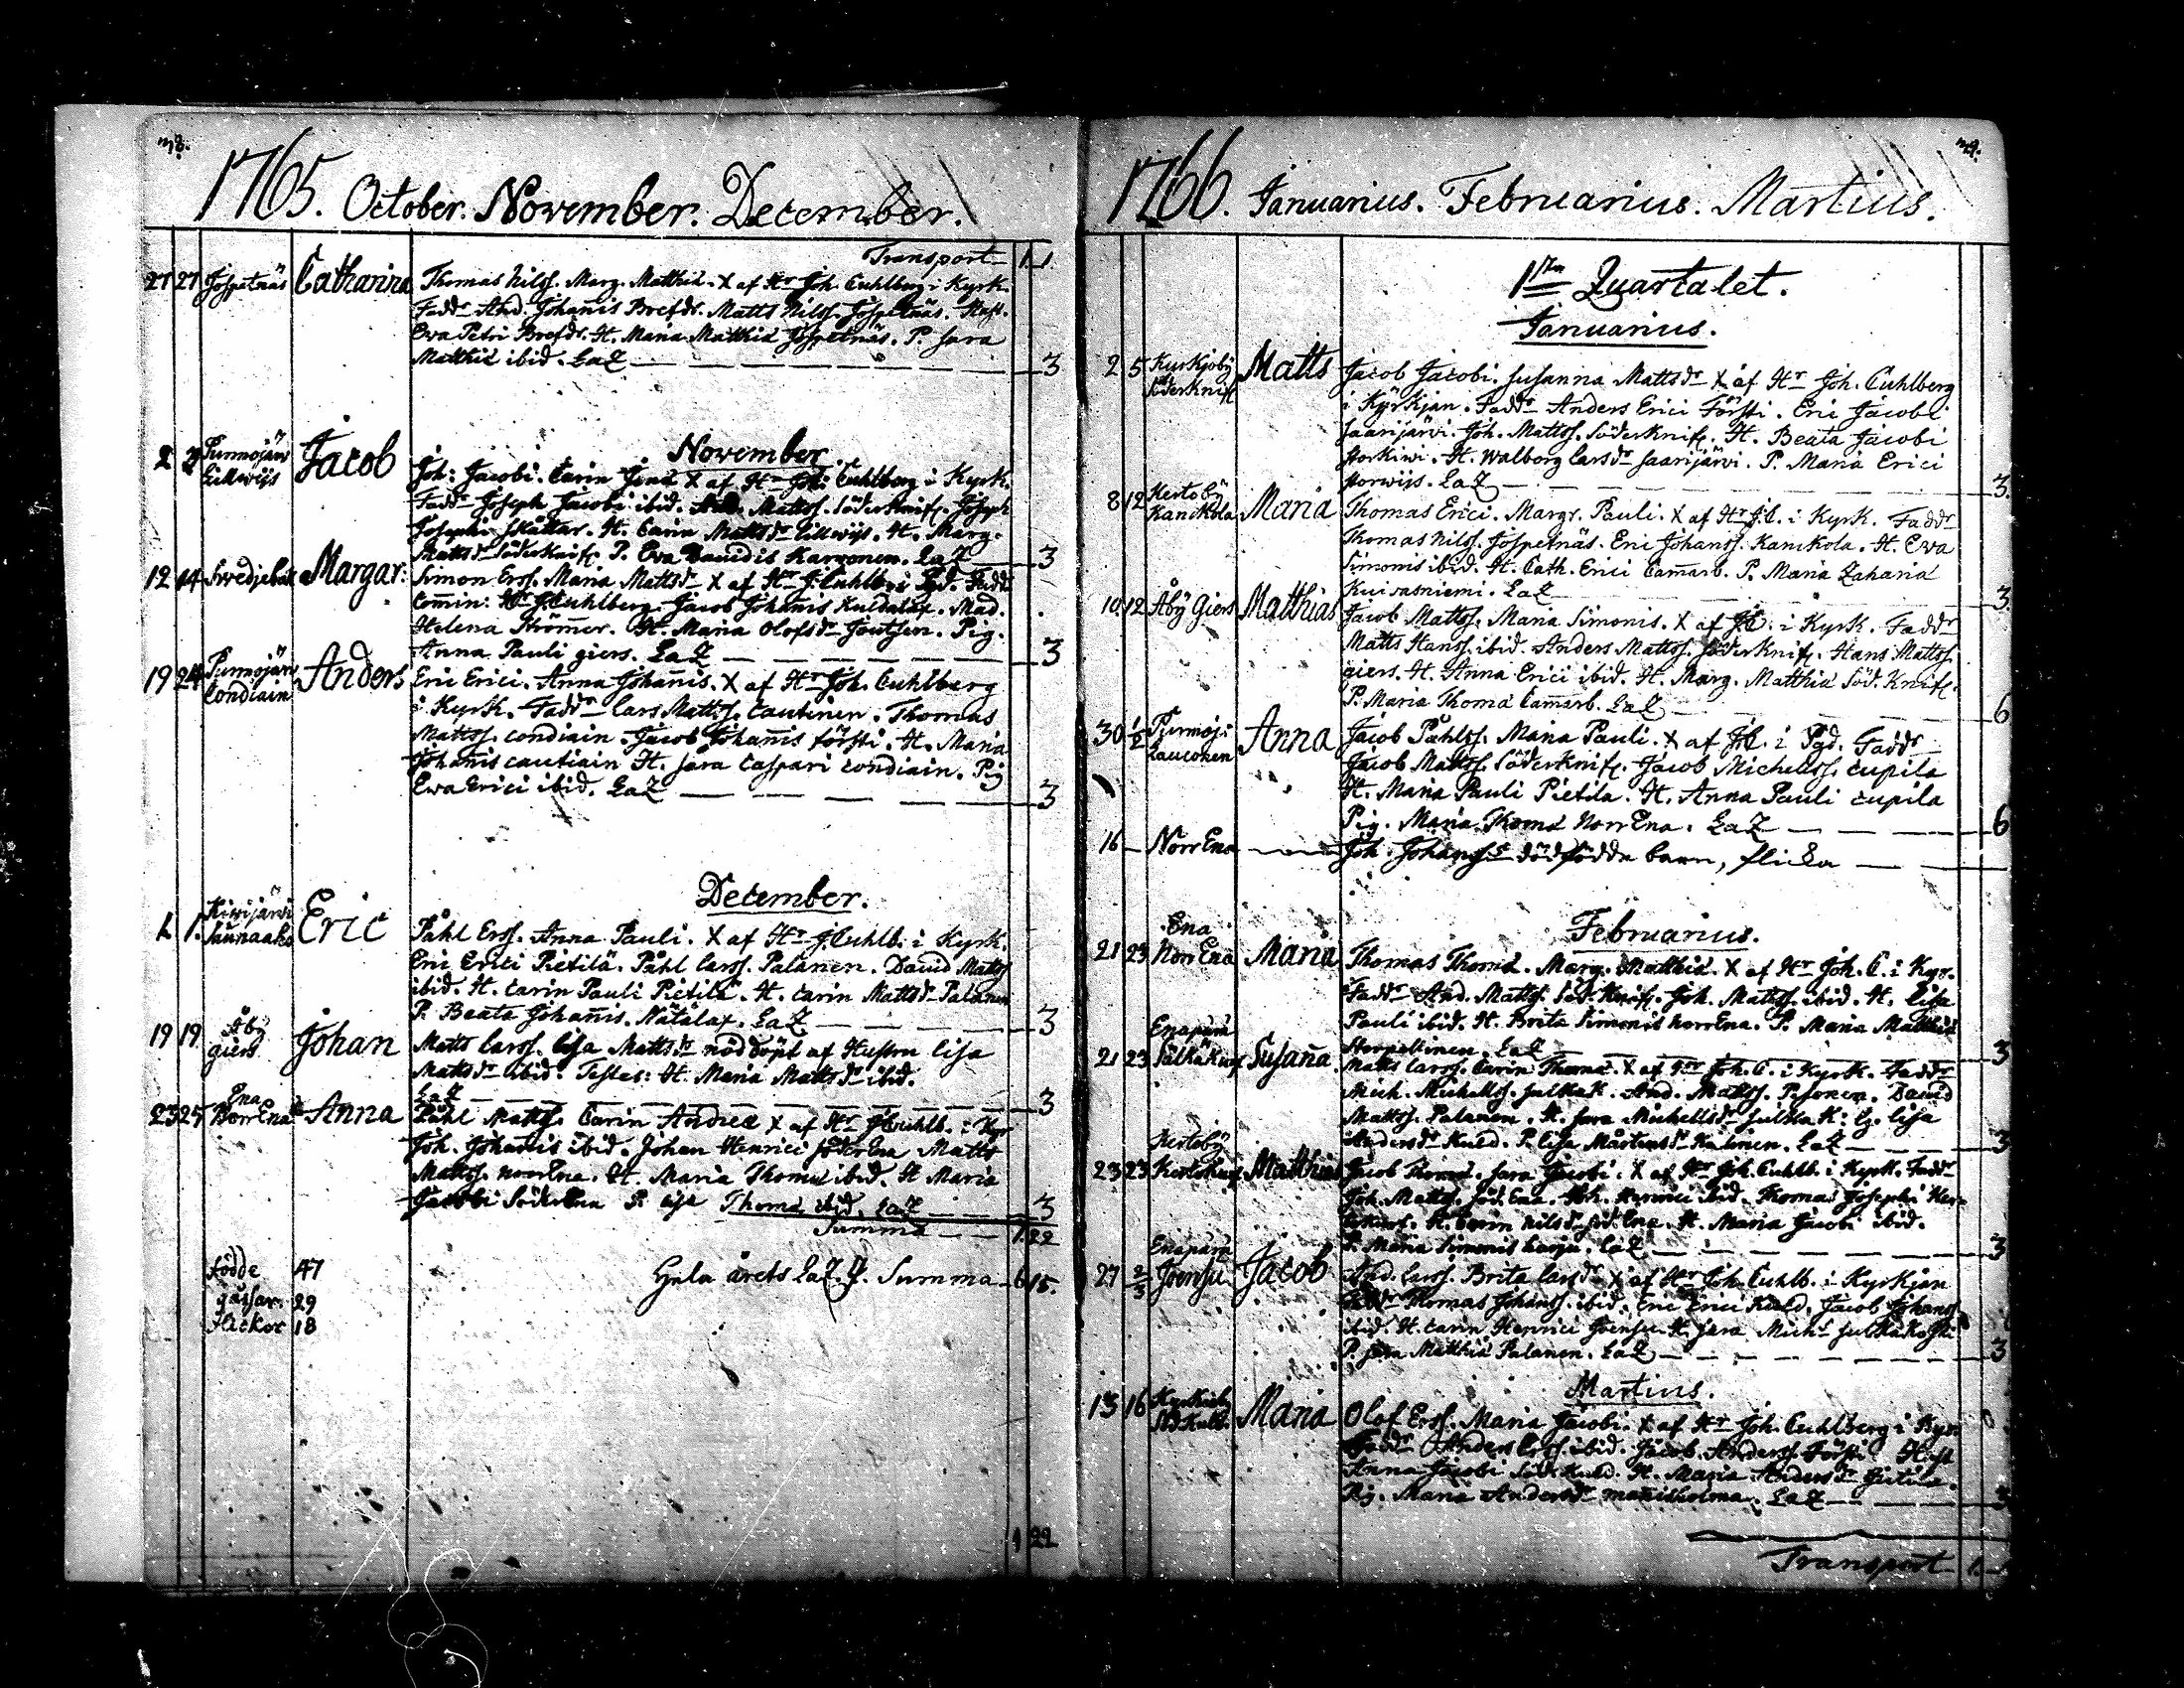 38.
1765. October. November. December.
Transport 1 1.
27 27 Jåspetnäs Catharina Thomas Nilss. Marg. Matthiæ. X af Hr Joh. Cuhlberg i Kyrk.
Faddr And. Johañis Brefdr. Matts Nilss. Jåspetnäs. Hust.
Ewa Petri Brefdr. H. Maria Matthiæ Jåspetnäs. P. Sara
Matthiæ ibid. LaZ 3
November
2 3 Purmojärv Lillwiis Jacob Joh: Jacobi. Carin X af Hr Joh: Cuhlberg i Kyrk.
Faddr Joseph Jacobi ibid. Mattss. Söderknif. Joseph
Josephi Skåttar. H. Carin Mattsdr Lillwiis. H. Marg.
Mattsdr Söderknif. P. Ewa Davidis Karvonen. LaZ 3
12 14 Swedjeback Margar: Simon Erss. Maria Mattsdr X af Hr J. Cuhlb. i Faddr
Com̃in: Hr J. Cuhlberg. Jacob Johañis Kuldalax. Mad.
Helena Ström̃er. H. Maria Olofsdr Joutsen. Pig.
Anna Pauli giers. LaZ 3
19 24 Purmojärv Condiain Anders Eric Erici. Anna Johañis. X af Hr Joh. Cuhlberg
i Kyrk. Faddr Lars Mattss. Cautinen. Thomas
Mattss. condiain. Jacob Johañis försti. H. Maria
Johañis cautiain H. Sara Caspari condiain. Pig
Ewa Erici ibid. LaZ 3
December.
1. 1. Kiwijärvi Saunaaho Eric Påhl Erss. Anna Pauli. X af Hr J. Cuhlb. i Kyrk.
Eric Erici Pietilä. Påhl Larss. Palanen. David Mattss
ibid. H. Carin Pauli Pietilä. H. Carin Mattsdr Palanen
P. Beata Johañis. Nätälax. LaZ 3
19 19 Åby giers Johan Matts Larss. Lisa Mattsdr nöddöpt af Hustru Lisa
Mattsdr ibid. Testes: H. Maria Mattsdr ibid.
LaZ 3
23 25 Ena NorrEna Anna Påhl Mattss. Carin Andreæ X af Hr J. Cuhlb. i Kyr
Joh. Johañis ibid. Johan Henrici söderEna Matts
Mattss. NorrEna. H. Maria Thomæ ibid. H Maria
Jacobi SöderEna P. Lisa Thomæ ibid. LaZ 3
Summa 1. 22
födde 47
gåssar. 29
flickor 18
Hela årets LaZ. Summa 6 15.
1 22
39.
1766. Januarius. Februarius. Martius.
1sta Quartalet.
Januarius.
2 5 Kurkjoby Söderknif Matts Jacob Jacobi. Susanna Mattsdr X af Hr Joh. Cuhlberg
i Kyrkjan. Faddr Anders Erici Försti. Eric Jacobi
Saarijärvi. Joh. Mattss. Söderknif. H. Beata Jacobi
Storkiwi. H. Walborg Larsdr Saarijärvi. P. Maria Erici
Storwiis. LaZ 3.
8 12 Kertoby Kanikola Maria Thomas Erici. Margr. Pauli. X af Hr J.C. i Kyrk. Faddr
Thomas Nilss. Jåspetnäs. Eric Johanss. Kanikola. H. Ewa
Simonis ibid. H. Cath. Erici Cam̃arb. P. Maria Zahariæ
Kuivasniemi. LaZ 3
10 12 Åby Giers Matthias Jacob Mattss. Maria Simonis. X af J.C. i Kyrk. Faddr
Matts Hanss. ibid. Anders Mattss. Söderknif. Hans Mattss.
giers. H. Anna Erici ibid. H. Marg. Matthiæ Söd. Knif.
P. Maria Thomæ Cam̃arb. LaZ 6
30 1/2 Purmoj: Lauconen Anna Jacob Påhlss. Maria Pauli. X af J.C. i Faddr
Jacob Mattss. Söderknif. Jacob Michelss. Cupila
H. Maria Pauli Pietila. H. Anna Pauli cupila
Pig. Maria Thomæ NorrEna. LaZ 6
16 — NorrEna — Joh. Johañss dödfödda barn, flicka
Februarius.
21 23 Ena NorrEna Maria Thomas Thomæ. Marg. Matthiæ. X af Hr Joh. C. i Kyr.
Faddr And. Mattss. Söd. Knif. Joh. Mattss. ibid. H. Lisa
Pauli ibid. H. Brita Simonis NorrEna. P. Maria Matthiæ
LaZ 3
21 23 Enapärä Susaña Matts Larss. Carin Thomæ. X af Hr Joh. C. i Kyrk. Faddr
Mich. Michelss. And. Mattss. Pesonen. David
Mattss. Palanen. H. Sara Michellsdr Lisa
Andersdr Kuld. P. Lisa Mårtensdr LaZ 3
23 23 Kertoby Matthias Jacob Thomæ. Sara Jacobi. X af Hr Joh. Cuhlb. i Kyrk. Faddr
Joh. Mattss. Söd. Ena. Joh. Henrici ibid. Thomas Josephi
H. Carin Nilsdr Söd. Ena. H. Maria Jacobi ibid.
P. Maria Simonis LaZ 3
27 2/3 Enapärä Joensu Jacob And. Larss. Brita Larsdr X af Hr Joh. Cuhlb. i Kyrkjan
Faddr Thomas Johanss. ibid. Eric Erici Kuld. Jacob Johanss
ibid. H. Carin Henrici Joensu. H. Sara Michs
P. Sara Matthiæ Palanen. LaZ 3
Martius.
13 16 Maria Olof Erss. Maria Jacobi. X af Hr Joh. Cuhlberg i Kyr.
Faddr Anders Erss. ibid. Jacob Anderss. Försti. Hust
Anna Jacobi Söd. Kuld. H. Maria Andersdr
Pig. Maria Andersdr LaZ 3
Transport 1.